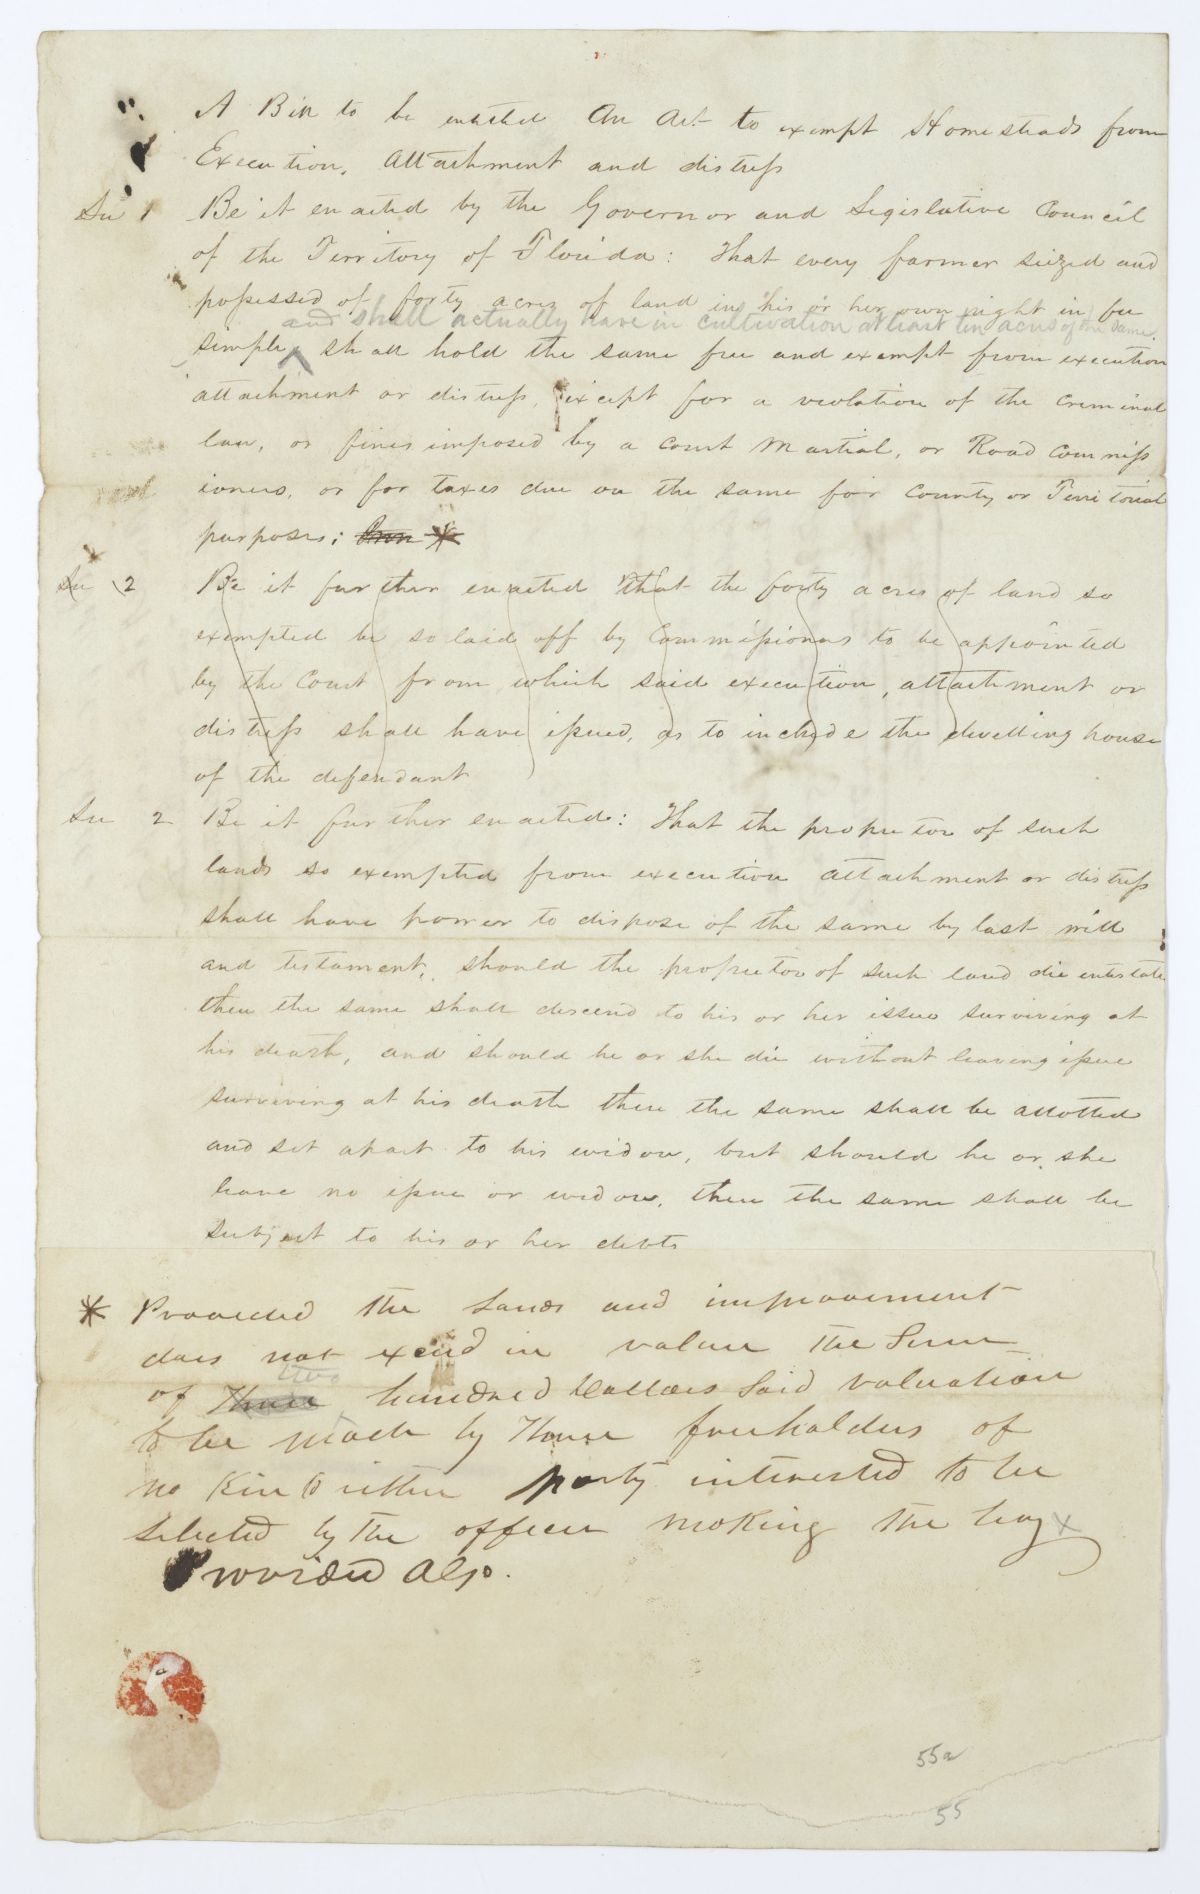 A Bill to be entitled An Act to exempt Homesteads from
Execution, Attachment and distress
Sec 1 Be it enacted by the Governor and Legislative Council
of the Territory of Florida: That every farmer seized and
possessed of forty acres of land in his or her own right in fee
and shall actually have in cultivation at least ten acres of the same
simple, shall hold the same free and exempt from execution
attachment or distress, except for a violation of the criminal
law, or fines imposed by a court Martial, or Road Commiss
ioners, or for taxes due on the same for County or Territorial
purposes; *
Sec 2 Be it further enacted that the forty acres of land so
exempted be so laid off by Commissioners to be appointed
by the Court from which said execution, attachment or
distress shall have issued, as to include the dwelling house
of the defendant
Sec 2 Be it further enacted: That the proprietor of such
lands so exempted from execution attachment or distress
shall have power to dispose of the same by last will
and testament, should the proprietor of such land die intestate
then the same shall descend to his or her issue surviving at
his death, and should he or she die without leaving issue
surviving at his death then the same shall be allotted
and set apart to his widow, but should he or she
leave no issue or widow, then the same shall be
subject to his or her debts
* Provided the Lands and improvement
does not exceed in value the Sum
two
of Three hundred Dollars Said valuation
to be made by Three freeholders of
no Kin to either party interested to be
Selected by the officer making the levy x
Provided Also.
55a
55